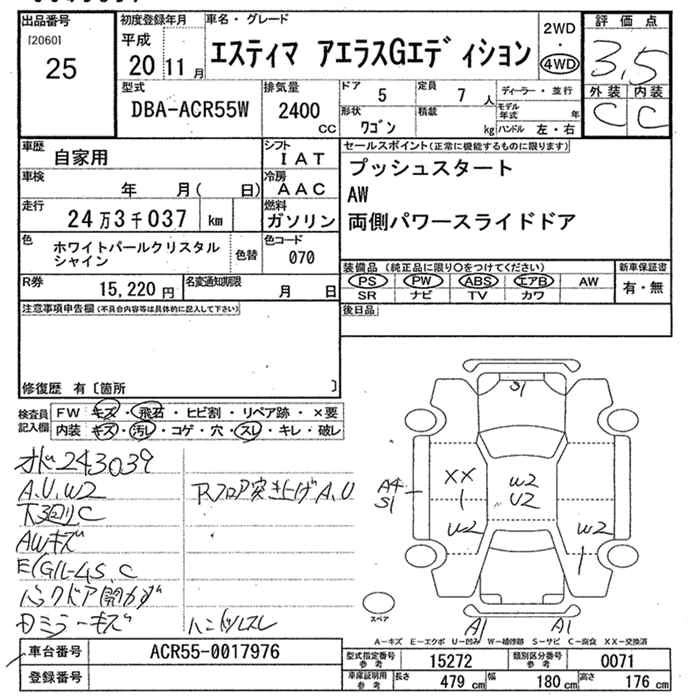 出品番号
[2060]
25
初度登録年月
平成
20 11 月
車名・グレード
エスティマ アエラスGエディション
2WD
・
4WD
評価点
3.5
外装 内装
C C
型式
DBA-ACR55W
排気量
2400 CC
ドア
5
定員
7 人
ディーラー・並行
形状
ワゴン
積載
kg
モデル年式 年
ハンドル 左・右
車歴
自家用
シフト
IAT
車検
年 月( 日)
冷房
AAC
走行
24万3千037 km
燃料
ガソリン
色
ホワイトパールクリスタル
シャイン
色替
色コード
070
R券
15,220 円
名変通知期限
月 日
セールスポイント(正常に機能するものに限ります)
プッシュスタート
AW
両側パワースライドドア
装備品 (純正品に限り○をつけてください)
PS PW ABS エアB AW
SR ナビ TV カワ
新車保証書
有・無
後日品
注意事項申告欄 (不具合内容等は具体的に記入して下さい)
修復歴 有〔箇所 〕
検査員
記入欄
FW キズ・飛石・ヒビ割・リペア跡・×要
内装 キズ・汚レ・コゲ・穴・スレ・キレ・破レ
オド243039
A.U.W2
下廻りC
AWキズ
E/Gルーム S.C
バックドア開カズ
Dミラーキズ
Rフロア突き上げA.U
ハンドルスレ
S1
A4
S1
XX
W2
U2
W2
W2
スペア
A1 A1
A-キズ E-エクボ U-凹み W-補修跡 S-サビ C-腐食 XX-交換済
車台番号
ACR55-0017976
登録番号
型式指定番号
参考
15272
類別区分番号
参考
0071
車庫証明用
参考
長さ
479 cm
幅
180 cm
高さ
176 cm